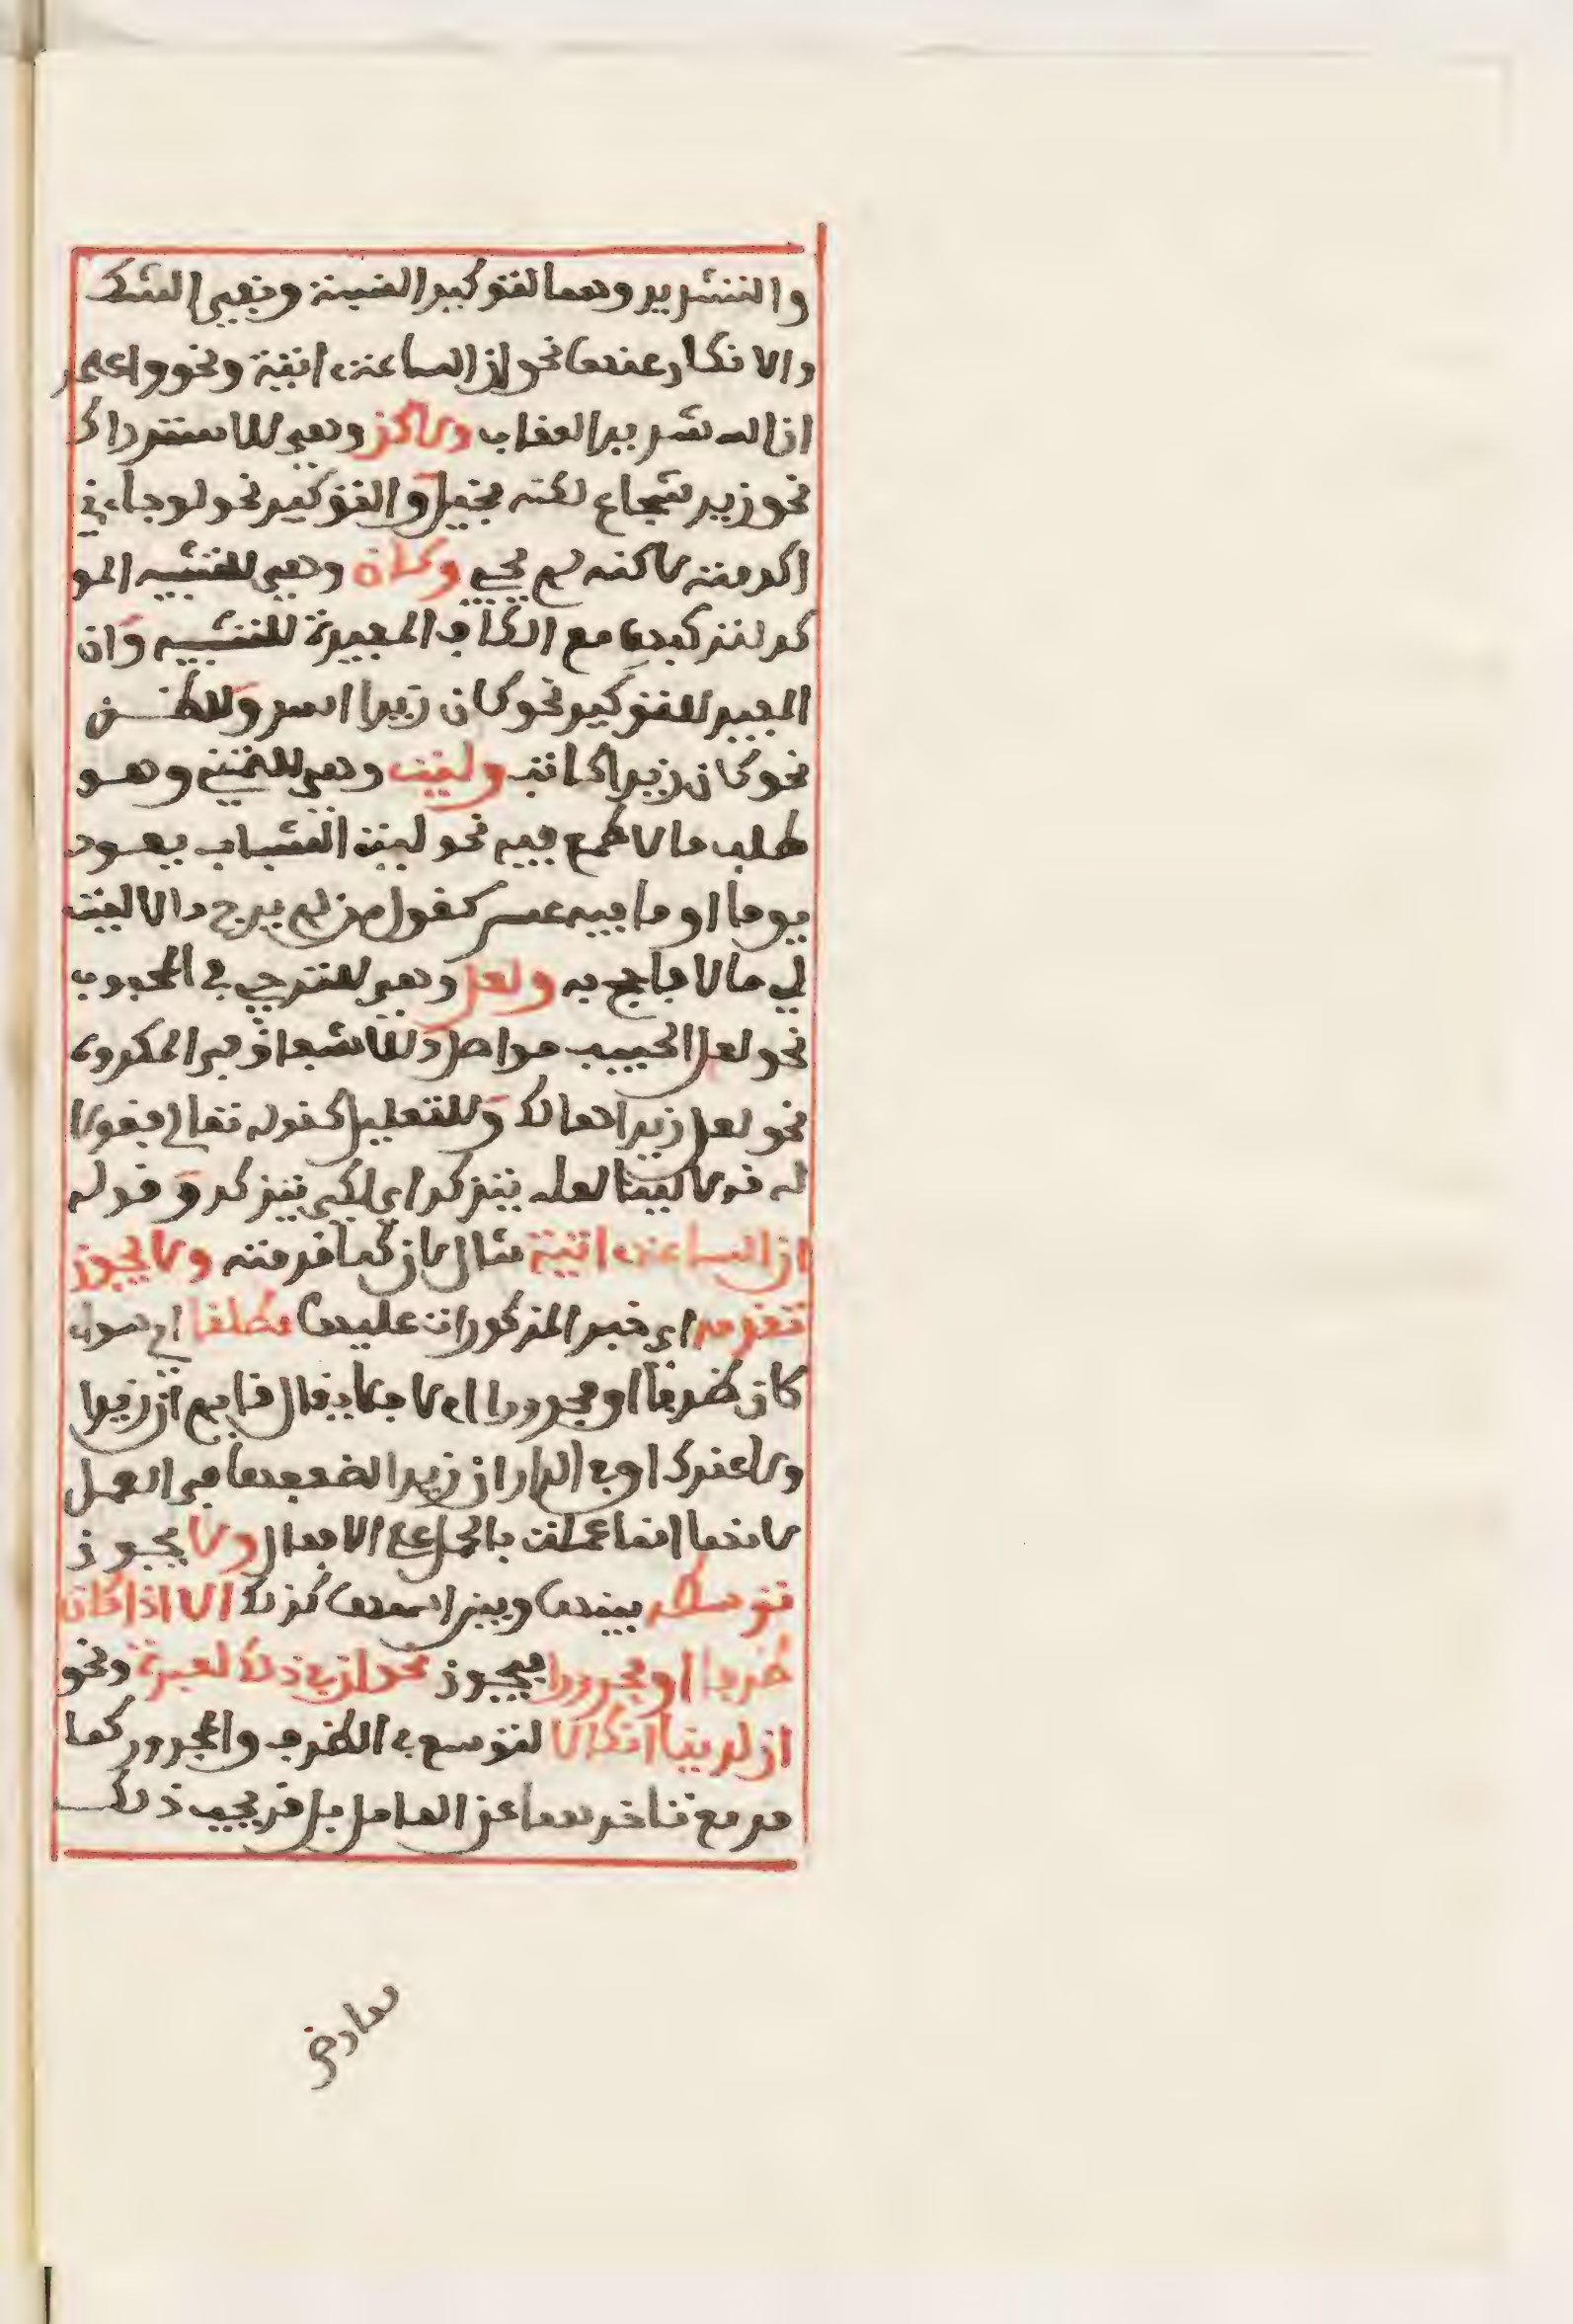 والتشديد وهما لتوكيد النسبة ونفي الشك
والانكار عنها نحو ان الساعة اتية ونحو واعلموا
ان الله شديد العقاب ولاكن وهي للاستدراك
نحو زيد شجاع لكنه بخيل والتوكيد نحو لو جاءني
اكرمته لاكنه لم يجي وكان وهي للتشبيه المو
كد لتركيبها مع الكاف المفيدة للتشبيه وان
المفيد للتوكيد نحو كان زيدا اسد وللظن
نحو كان زيدا كاتب وليت وهي للتمني وهو
طلب ما لا طمع فيه نحو ليت الشباب يعود
يوما او ما فيه عسر كقول من لم يرج مالا ليت
لي مالا فاحج به ولعل وهي للترجي في المحبوب
نحو لعل الحبيب مواصل وللاشفاق في المكروه
نحو لعل زيدا هالك وللتعليل كقوله تعالى فقولا
له قولا لينا لعله يتذكر اي لكي يتذكر وقوله
ان الساعة اتية مثال لان كما قدمته ولا يجوز
تقديم اي خبر المذكورات عليها مطلقا اي سواء
كان ظرفا او مجرورا ام لا فلا يقال قايم ان زيدا
ولا عندك او في الدار ان زيدا لضعفها في العمل
لانها انما عملت بالحمل على الافعال ولا يجوز
توسطه بينها وبين اسمها كذلك الا اذا كان
ظرفا او مجرورا فيجوز نحو ان في ذلك لعبرة ونحو
ان لدينا انكالا لتوسع في الظرف والمجرور كما
مر مع تاخرهما عن العامل بل قد يجب ذلك